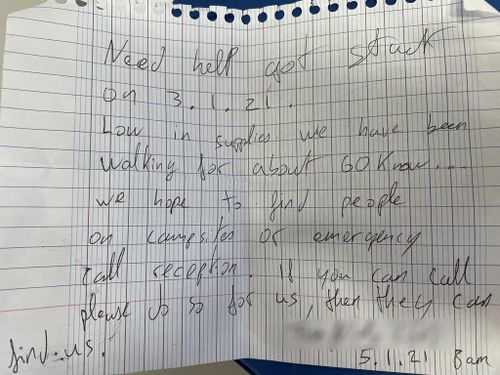 Need help got stuck
on 3.1.21.
Low in supplies. we have been
walking for about 60Know...
we hope to find people
on campsites or emergency
call reception. If you can call
please do so for us, then they can
find us.
5.1.21 8am